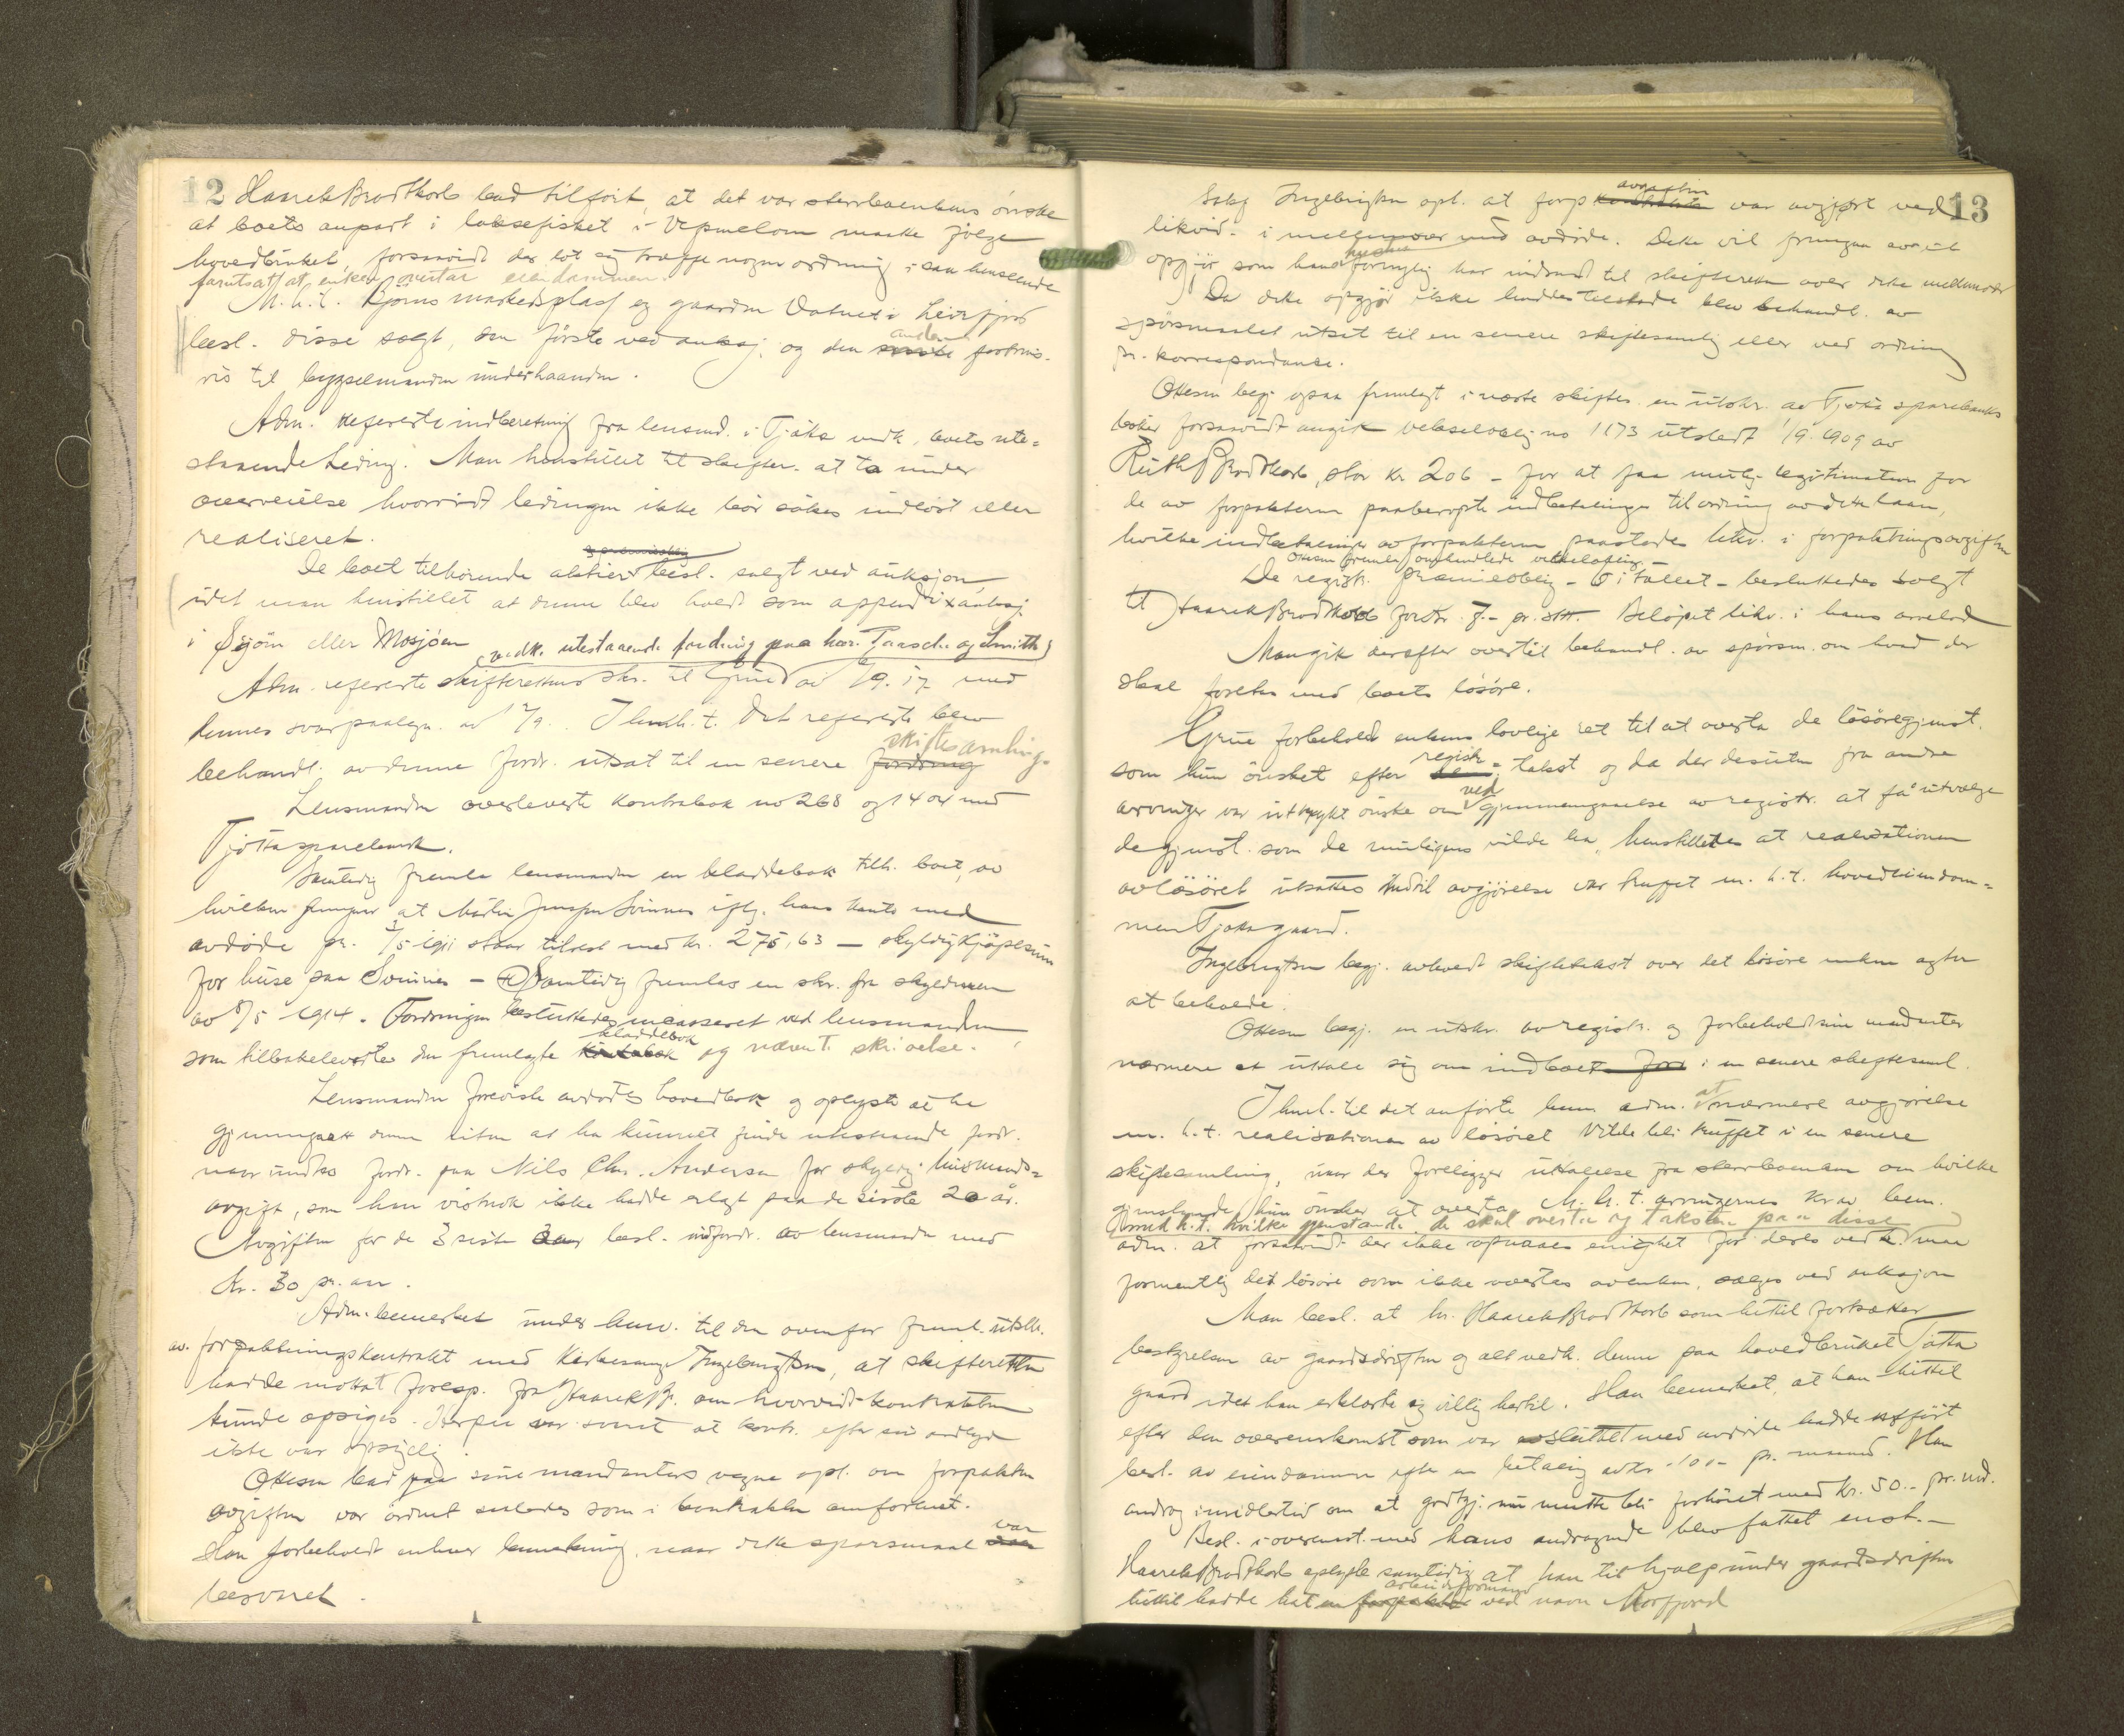 12 Haarek Brodtkorb bad tilfört, at det var sterboenkens önske
at boets anpart i laksefisket i Vepmelom maatte fölge
hovedbruket forsaavidt der lot sig træffe nogen ordning i saa henseende
forutsatt at enken overtar eiendommen.
M.h.t. Björns markedsplass og gaarden Vatnet i Leirfjord
besl. disse solgt, den förste ved auksj. og den anden fortrins-
vis til bygselmanden underhaanden.
Adm. refererte indberetning fra lensmd. i Tjötta vedk. boets ute-
staaende leding. Man henstillet til skifter. at ta under
overveielse hvorvidt ledingen ikke bör sökes indlöst eller
realiseret.
De boet tilhörende aktier besl. solgt ved auksjon,
idet man henstillet at denne blev holdt som appendix auksj.
i Sjöen eller Mosjöen
(vedk. utestaaende fordring paa har. Paasche og Smith)
Adm. refererte skifterettens skr. til Grue av /9. 17 med
dennes svarpaategn. av /9. I henh. t. det refererte blev
behandl. av denne fordr. utsat til en senere skiftesamling.
Lensmanden overleverte kontrabok no 268 og 1404 med
Tjötta sparebank.
Samtidig fremla lensmanden en kladdebok tilh. boet, av
hvilken fremgaar at Martin Svinnes iflg. hans konto med
avdöde pr. /5 1911 staar tilrest med kr. 275,63 – skyldig kjöpesum
for huse paa Svinnes – Samtidig fremlas en skr. fra skyldneren
av 8/5 1914. Fordringen besluttedes incasseret ved lensmanden
som tilbakeleverte den fremlagte kladdebok og nævnt skrivelse.
Lensmanden foreviste avdödes hovedbok og oplyste at ha
gjennemgaatt denne uten at ha kunnet finde utestaaende fordr.
naar undtas fordr. paa Nils Chr. Andersen for skyldig husmands-
avgift, som han vistnok ikke hadde erlagt paa de sisste 20 år.
Avgiften for de 3 siste aar besl. indfordr. av lensmanden med
kr. 30 pr. aar.
Adm. bemerket under henv. til den ovenfor freml. utskr.
av forpaktningskontrakt med Kirkesanger Ingebrigtsen, at skifteretten
hadde mottat foresp. fra Haarek Br. om hvorvidt kontrakten
kunde opsiges. Herpaa var svaret at kontr. efter sin ordlyd
ikke var opsigelig.
Ottesen bad paa sine mandanters vegne opl. om forpaktn.
avgiften var ordnet saaledes som i kontrakten omforenet.
Han forbeholdt enhver bemerkning, naar dette spörsmaal var
besvaret.
13
Ingebrigtsen opl. at forp. avgiften var avgjort ved
likvid. i mellemvær med avdöde. Dette vil fremgaa av et
opgjör som hand fornylig har indsendt til skifteretten over dette mellemvær
Da dette opgjör ikke haddes tilstede blev behandl. av
spörsmaalet utsat til en senere skiftesamlig eller ved ordning
pr. korrespondanse.
Ottesen begj. ogsaa fremlagt i næste skiftes. en utskr. av Tjötta sparebanks
böker forsaavidt angik vekselobligj. no 1173 utstedt 1/9 1909 av
Ruth Brodtkorb, stor kr 206 – for at faa mulig legitimation for
de av forpakteren paaberopte indbetalinger til ordning av dette laan,
hvilke indbetalinger av forpakteren paastodes likv. i forpaktningsavgiften
Ottesen fremla omhandlede vekselobligj.
De registr. præmieoblig. – 5 i tallet – besluttedes solgt
til Haarek Brodtkorb for kr. 7.- pr. stk. Belöpet likv. i hans arvelod
Man gik derefter over til behandl. av spörsm. om hvad der
skal foretas med boets lösöre.
Grue forbeholdt enkens lovlige ret til at overta de lösöregjenst.
som hun önsket efter registr. takst og da der desuten fra andre
arvinger var uttrykt önske om ved gjennemgaaelse av registr. at få utvælge
de gjenst. som de muligens vilde ha, henstilledes at realisationen
av lösöret utsattes indtil avgjörelse var truffet m.h.t. hovedeiendom-
men Tjöttagaard.
Ingebrigtsen begj. avholdt skiftetakst over det lösöre enken agter
at beholde.
Ottesen begj. en utskr. av registr. og forbeholdt sine mandanter
nærmere at uttale sig om indboet i en senere skiftesaml.
I henh. til det anförte bem. adm. at nærmere avgjörelse
m.h.t. realisationen av lösöret vilde bli truffet i en senere
skiftesamling, naar der foreligger uttalelse fra sterboenken om hvilke
gjenstande hun önsker at overta. M.h.t. arvingernes krav bem.
(med h.t. hvilke gjenstande de skal overta og taksten paa disse)
adm. at forsaavidt der ikke opnaaes enighet for deres vedk. maa
formentlig det lösöre som ikke overtas av enken, sælges ved auksjon
Man besl. at hr. Haarek Brodtkorb som hittil fortsætter
bestyrelsen av gaardsdriften og alt vedk. denne paa hovedbruket Tjötta
gaard idet han erklærte sig villig hertil. Han bemerket, at han hittil
efter den overenskomst som var avsluttet med avdöde hadde utfört
best. av eiendommen efter en betaling av kr. 100 – pr. maaned. Han
androg imidlertid om at godtgj. nu maatte bli forhöiet med kr. 50.- pr. md.
Besl. i overenst. med hans andragende blev fattet enst. –
Haarek Brodtkorb oplyste samtidig at han til hjælp under gaardsdriften
hittil hadde hat en arbeidsformand ved navn Morfjord